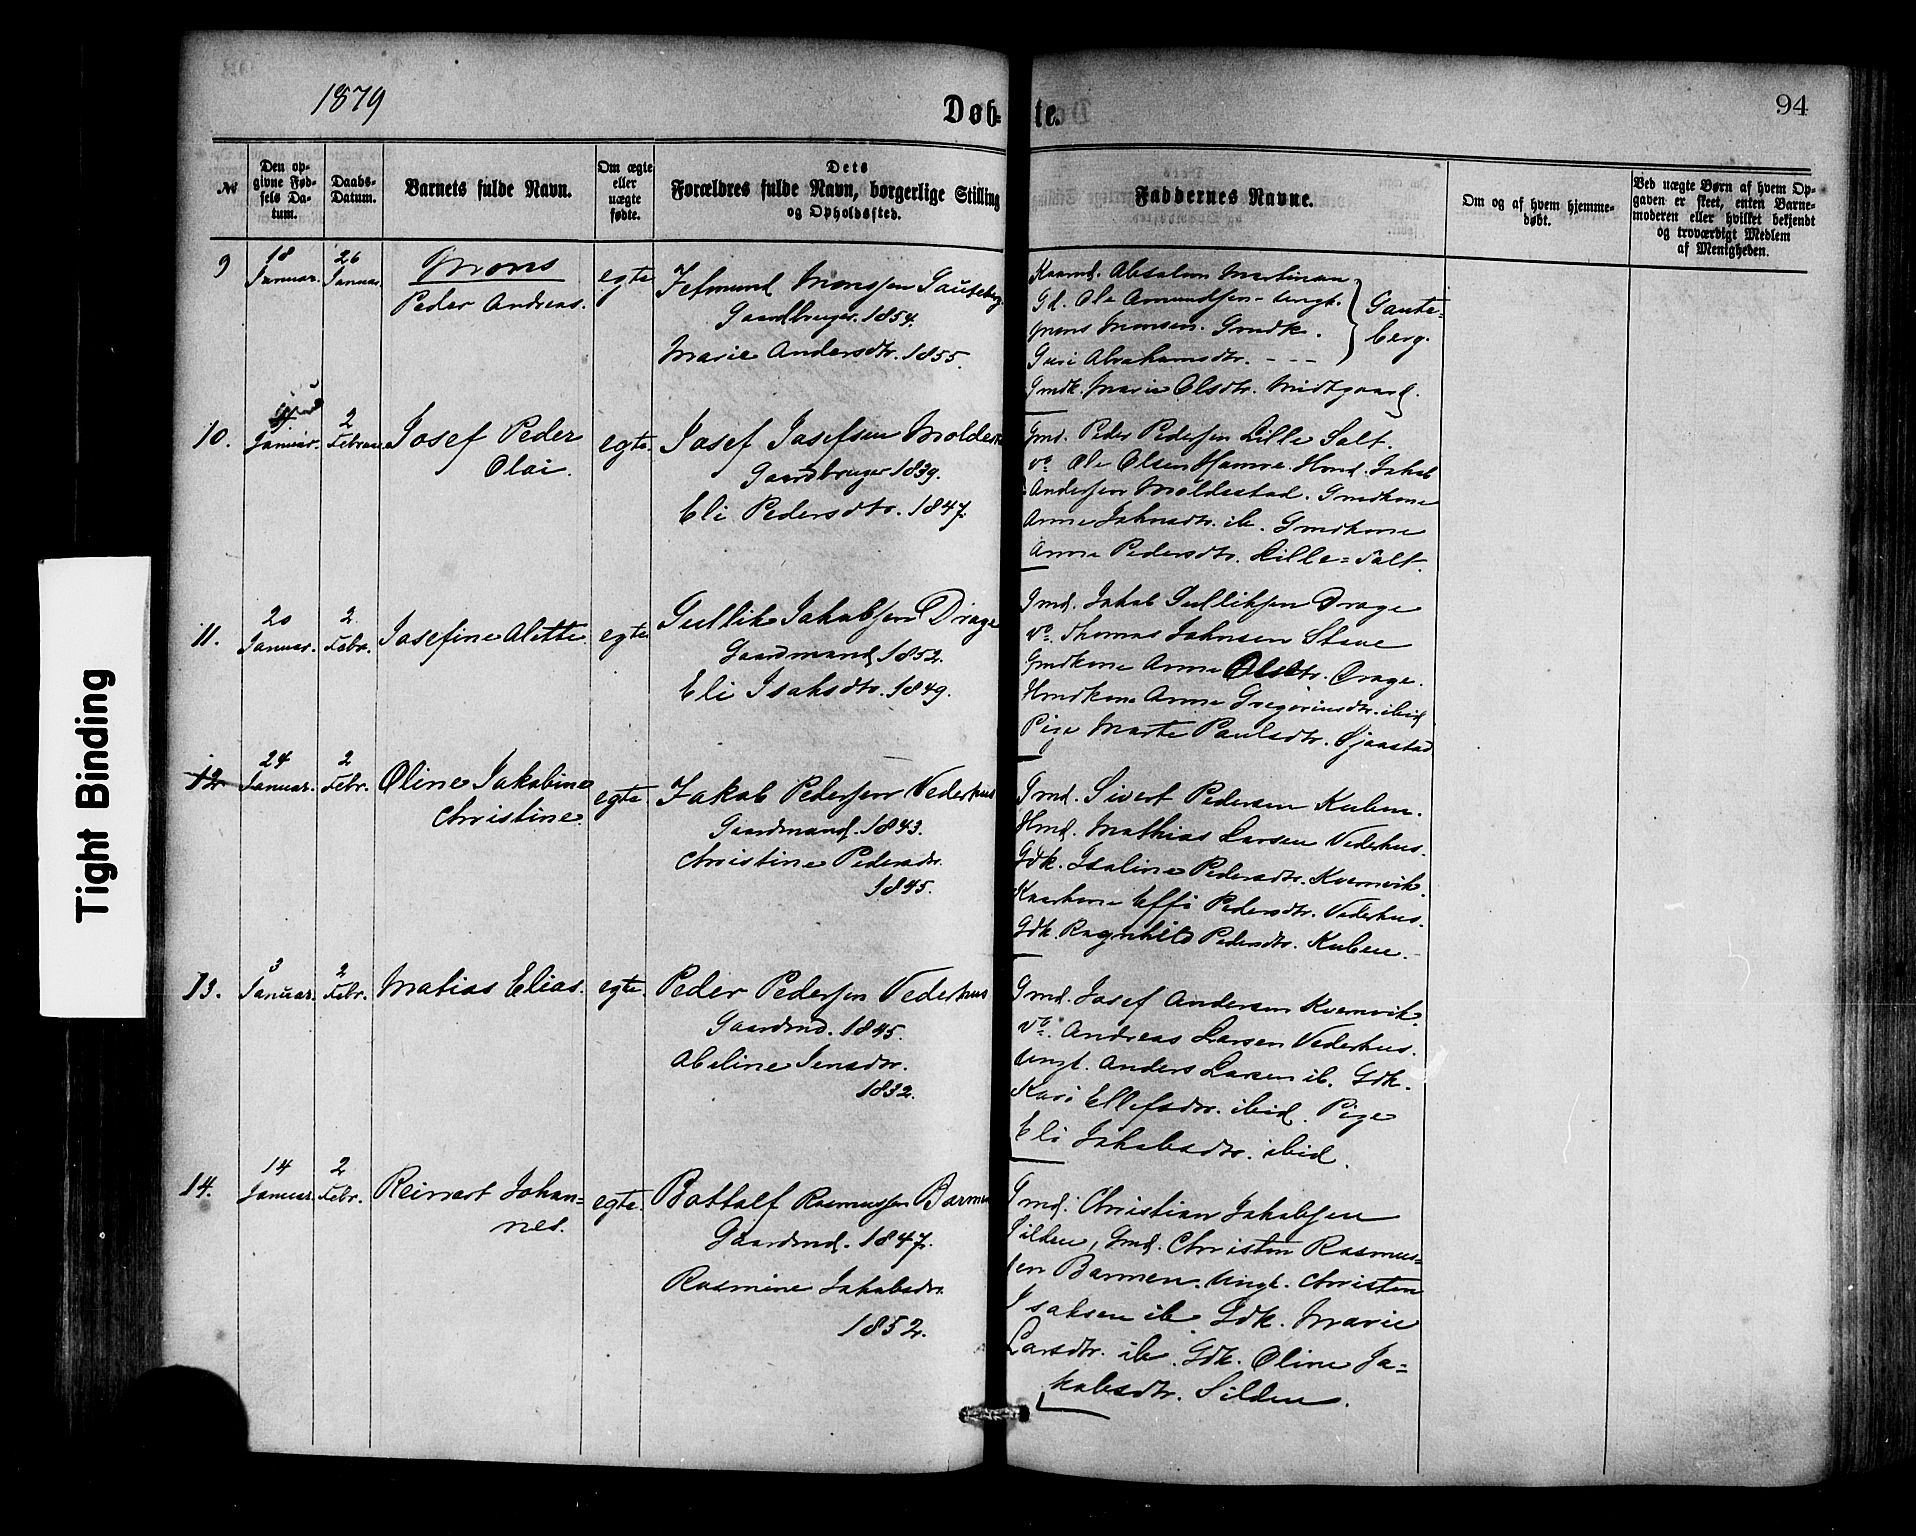 1879
Døb-te.
94
№
Den opgivne Fødsels Datum.
Daabs-Datum.
Barnets fulde Navn.
Om ægte eller uægte fødte.
Dets Forældres fulde Navn, borgerlige Stilling og Opholdsfted.
Faddernes Navne.
Om og af hvem hjemmedøbt.
Ved uægte Børn af hvem Opgaven er skeet, enten Barnemoderen eller hvilket bekjendt og troværdigt Medlem af Menigheden.
9
18 Januar.
26 Januar
Mons
Peder Andreas.
egte
Monssen Gauteberg
Gaardbruger. 1854.
Marie Andersdtr. 1855.
Absalon Martinsen
Gd. Ole Amundsen - Ungk.
Mons Monsen. Gmdk.
Guri Abrahamsdtr. - - -
Gauteberg.
Gmdk. Marie Olsdtr. Midtgaard.
10.
Januar.
2 Februar
Josef Peder
Olai.
egte.
Josef Josefsen
Gaardbruger 1839.
Eli Pedersdtr. 1847.
Gmd. Peder Pedersen Lille Salt.
do Ole Olsen Hamre Hmd. Jakob
Andersen Moldestad. Gmdkone
Anne Johnsdtr. ib. Gmdkone
Anne Pedersdtr. Lille=Salt.
11.
20 Januar.
2. Febr.
Josefine Alette
egte
Gullik Jakobsen Drage
Gaardmand 1852.
Eli Isaksdtr. 1849.
Gmd. Jakob Gulliksen Drage
do Thomas Johnsen Stave
Gmdkone Anne Olsdtr. Drage.
Hmdkone Anne Gregoriusdtr. ibid
Pige Marte Paulsdtr.
12
24 Januar.
2 Febr.
Oline Jakobine
Christine.
egte.
Jakob Pedersen Vederhus
Gaardmand. 1843.
Christine Pedersdtr.
1845.
Gmd. Sivert Pedersen Kuben.
Hmd. Mathias Larsen Vederhus.
Gdk. Isaline Pedersdtr. Kvernvik.
Kaarkone Effi Pedersdtr. Vederhus.
Gdk Ragnhild Pedersdtr. Kuben.
13.
3 Januar.
2 Febr.
Matias Elias.
egte.
Peder Pedersen Vederhus
Gaardmd. 1845.
Abeline Jensdtr.
1832.
Gmd. Josef Andersen Kvernvik.
do Andreas Larsen Vederhus.
Ungk. Anders Larsen ib. Gdk.
Kari Ellefsdtr. ibid. Pige
Eli Jakobsdtr. ibid.
14.
14 Januar.
2 Febr.
Reinert Johan=
nes.
egte.
Bottolf Rasmussen Barmen
Gaardmd. 1847.
Rasmine Jakobsdtr
1852.
Gmd. Christian Jakobsen
Silden, Gmd. Christen Rasmus=
sen Barmen. Ungk. Christen
Isaksen ib. Gdk. Marie
Larsdtr. ib. Gdk. Oline Ja=
kobsdtr. Silden.
Tight Binding